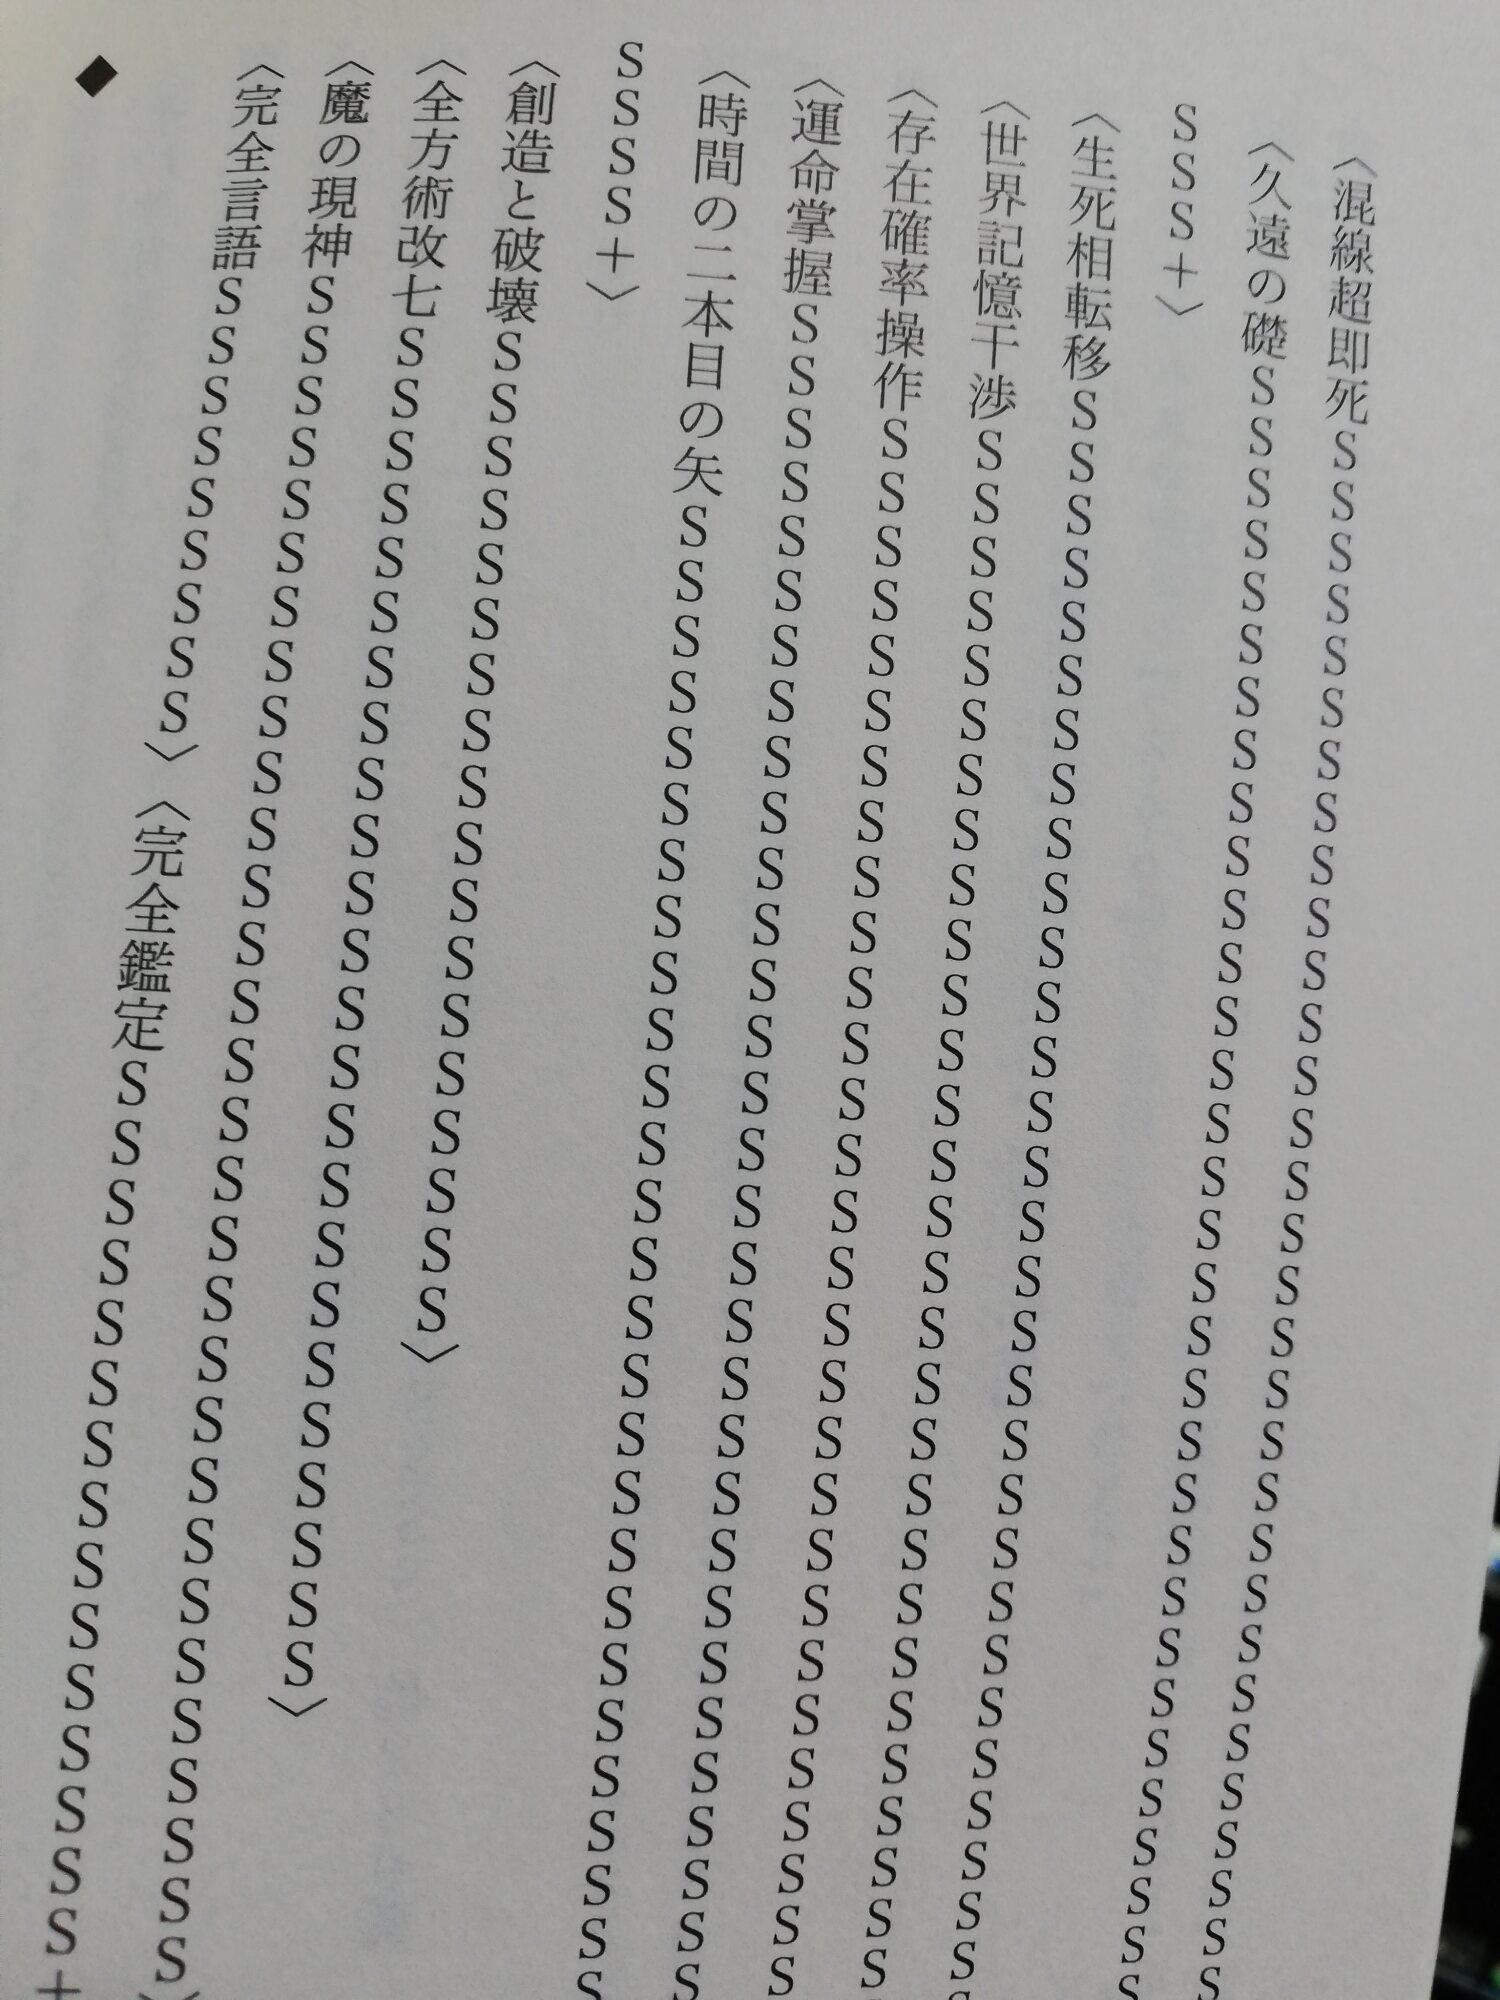 〈混線超即死SSSSSSSSSSSSSSSSSSSSSSSSSSSSSSS
〈久遠の礎SSSSSSSSSSSSSSSSSSSSSSSSSSSSSSSS
SSS+〉
〈生死相転移SSSSSSSSSSSSSSSSSSSSSSSSSSSSSSS
〈世界記憶干渉SSSSSSSSSSSSSSSSSSSSSSSSSSSSS
〈存在確率操作SSSSSSSSSSSSSSSSSSSSSSSSSSSSS
〈運命掌握SSSSSSSSSSSSSSSSSSSSSSSSSSSSSSS
〈時間の二本目の矢SSSSSSSSSSSSSSSSSSSSSSSSSSS
SSSS+〉
〈創造と破壊SSSSSSSSSSSSSSSSSS〉
〈全方術改七SSSSSSSSSSSSSSSSSSSSSSSS〉
〈魔の現神SSSSSSSSSSSSSSSSSSSSSSSSSSSSSS〉
〈完全言語SSSSSSSSS〉〈完全鑑定SSSSSSSSSSSSSSS+
◆